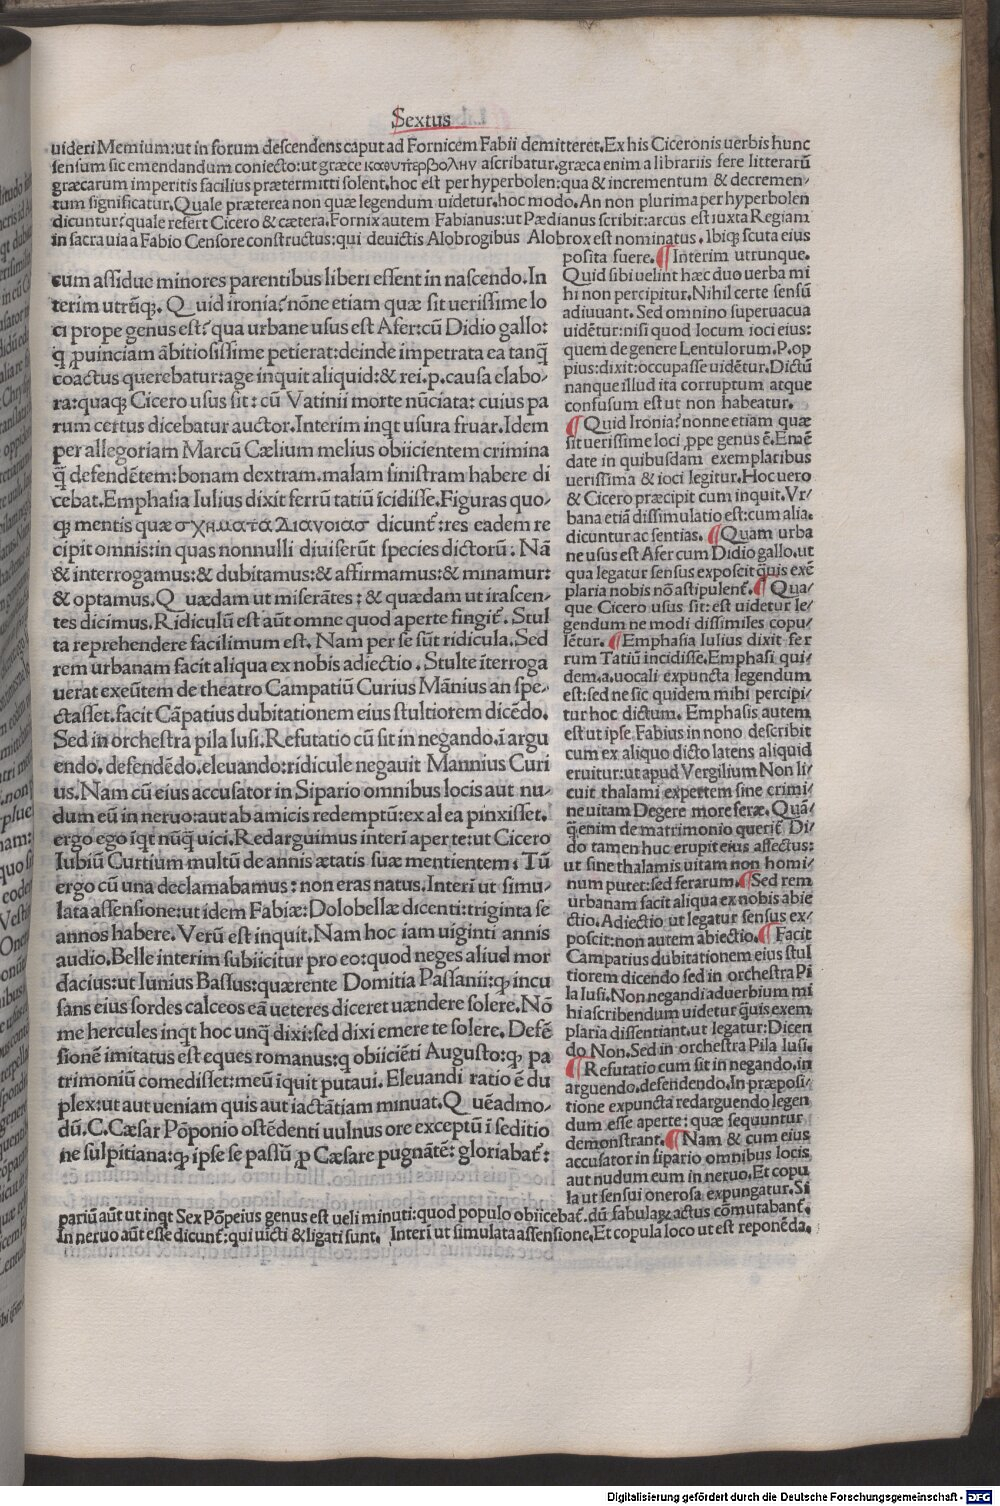 Sextus
uideri Memium:ut in forum descendens caput ad Fornicem Fabii demitteret.Ex his Ciceronis uerbis hunc
sensum sic emendandum coniecto:ut græce καθυπερβολην ascribatur.græca enim a librariis fere litterarū
græcarum imperitis facilius prætermitti solent.hoc est per hyperbolen:qua & incrementum & decremen-
tum significatur.Quale præterea non quæ legendum uidetur.hoc modo.An non plurima per hyperbolen
dicuntur:quale refert Cicero & cætera.Fornix autem Fabianus:ut Pædianus scribit:arcus est iuxta Regiam
in sacra uia a Fabio Censore constructus:qui deuictis Alobrogibus Alobrox est nominatus. Ibiq; scuta eius
cum assidue minores parentibus liberi essent in nascendo.In
terim utrūq;. Quid ironia? nōne etiam quæ sit uerissime lo
ci prope genus est? qua urbane usus est Afer:cū Didio gallo:
q̄ ꝓuinciam ābitiosissime petierat:deinde impetrata ea tanq̄
coactus querebatur:age inquit aliquid:& rei.p.causa elabo-
ra:quaq; Cicero usus sit: cū Vatinii morte nūciata: cuius pa
rum certus dicebatur auctor.Interim inqt usura fruar.Idem
per allegoriam Marcū Cælium melius obiicientem crimina
q̄ defendētem:bonam dextram.malam sinistram habere di
cebat.Emphasia Iulius dixit ferrū tatiū īcidisse.Figuras quo-
q; mentis quæ σχηματα Διανοιασ dicunt̄:res eadem re
cipit omnis:in quas nonnulli diuiserūt species dictorū. Nā
& interrogamus:& dubitamus:& affirmamus:& minamur:
& optamus.Quædam ut miserātes: & quædam ut irascen-
tes dicimus.Ridiculū est aūt omne quod aperte fingit̄. Stul
ta reprehendere facilimum est. Nam per se sūt ridicula.Sed
rem urbanam facit aliqua ex nobis adiectio. Stulte īterroga
uerat exeūtem de theatro Campatiū Curius Mānius an spe-
ctasset.facit Cāpatius dubitationem eius stultiorem dicēdo.
Sed in orchestra pila lusi.Refutatio cū sit in negando.ī argu
endo. defendēdo.eleuando:ridicule negauit Mannius Curi
us.Nam cū eius accusator in Sipario omnibus locis aut nu-
dum eū in neruo:aut ab amicis redemptū:ex alea pinxisset.
ergo ego īqt nūq̄ uici.Redarguimus interī aperte:ut Cicero
Iubiū Curtium multū de annis ætatis suæ mentientem: Tū
ergo cū una declamabamus: non eras natus.Interī ut simu-
lata assensione:ut idem Fabiæ:Dolobellæ dicenti:triginta se
annos habere.Verū est inquit.Nam hoc iam uiginti annis
audio.Belle interim subiicitur pro eo:quod neges aliud mor
dacius:ut Iunius Bassus:quærente Domitia Passanii:q; incu
sans eius sordes calceos eā ueteres diceret uændere solere.Nō
me hercules inqt hoc unq̄ dixi:sed dixi emere te solere. Defē
sionē imitatus est eques romanus:q obiiciēti Augusto:q; pa
trimoniū comedisset:meū iquit putaui. Eleuandi ratio ē du
plex:ut aut ueniam quis aut iactātiam minuat.Quēadmo-
dū.C.Cæsar Pōponio ostēdenti uulnus ore exceptū ī seditio
ne sulpitiana:q; ipse se passū ꝓ Cæsare pugnātē: gloriabat̄:
posita fuere. ¶ Interim utrunque.
Quid sibi uelint hæc duo uerba mi
hi non percipitur.Nihil certe sensū
adiuuant. Sed omnino superuacua
uidētur:nisi quod locum ioci eius:
quem de genere Lentulorum.P.op
pius:dixit:occupasse uidētur.Dictū
nanque illud ita corruptum atque
confusum est ut non habeatur.
¶ Quid Ironia? nonne etiam quæ
sit uerissime loci ꝓpe genus ē.Emē
date in quibusdam exemplaribus
uerissima & ioci legitur.Hoc uero
& Cicero præcipit cum inquit.Vr-
bana etiā dissimulatio est:cum alia.
dicuntur ac sentias. ¶ Quam urba
ne usus est Afer cum Didio gallo.ut
qua legatur sensus exposcit q̄uis exē
plaria nobis nō astipulent̄. ¶ Qua-
que Cicero usus sit: est uidetur le-
gendum ne modi dissimiles copu-
lētur. ¶ Emphasia Iulius dixit fer
rum Tatiū incidisse.Emphasi qui-
dem.a.uocali expuncta legendum
est:sed ne sic quidem mihi percipi-
tur hoc dictum. Emphasis autem
est ut ipse Fabius in nono describit
cum ex aliquo dicto latens aliquid
eruitur:ut apud Vergilium Non li-
cuit thalami expertem sine crimi-
ne uitam Degere more feræ. Quā-
q̄ enim de matrimonio querit̄ Di-
do tamen huc erupit eius affectus:
ut sine thalamis uitam non homi-
num putet:sed ferarum. ¶ Sed rem
urbanam facit aliqua ex nobis abie
ctio. Adiectio ut legatur sensus ex-
poscit:non autem abiectio. ¶ Facit
Campatius dubitationem eius stul
tiorem dicendo sed in orchestra Pi
la lusi. Non negandi aduerbium mi
hi ascribendum uidetur q̄uis exem
plaria dissentiant.ut legatur:Dicen
do Non.Sed in orchestra Pila lusi.
¶ Refutatio cum sit in negando.in
arguendo.defendendo.In præposi-
tione expuncta redarguendo legen
dum esse aperte: quæ sequuntur
demonstrant. ¶ Nam & cum eius
accusator in sipario omnibus locis
aut nudum eum in neruo.Et copu
la ut sensui onerosa expungatur. Si
pariū aūt ut inqt Sex Pōpeius genus est ueli minuti:quod populo obiicebat̄. dū fabulaꝝ actus cōmutabant̄.
In neruo aūt esse dicunt̄:qui uicti & ligati sunt. Interī ut simulata assensione.Et copula loco ut est reponēda.
Digitalisierung gefördert durch die Deutsche Forschungsgemeinschaft - DFG